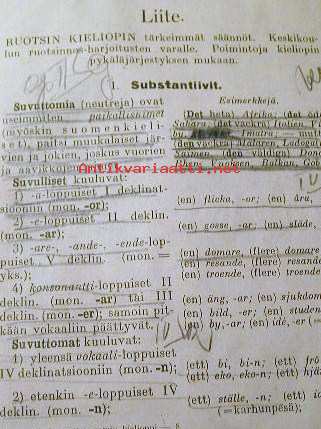 Liite.
RUOTSIN KIELIOPIN tärkeimmät säännöt. Keskikou-
lun ruotsinnos-harjoitusten varalle. Poimintoja kieliopin
pykäläjärjestyksen mukaan.
1. Substantiivit.
Suvuttomia (neutreja) ovat
useimmiten paikallisnimet
(myöskin suomenkieli-
set), paitsi muukalaiset jär-
vien ja jokien, joskus vuorien
ja aavikkojen
Suvulliset kuuluvat:
1) -a-loppuiset I deklinat-
siooniin (mon. -or);
2) -e-loppuiset II deklin.
(mon. -ar);
3) -are-, -ande-, -ende-lop-
puiset V deklin. (mon. =
yks.);
4) konsonantti-loppuiset II
deklin. (mon. -ar) tai III
deklin. (mon. -er); samoin pit-
kään vokaaliin päättyvät.
Suvuttomat kuuluvat:
1) yleensä vokaali-loppuiset
IV deklinatsiooniin (mon. -n);
2) etenkin -e-loppuiset IV
deklin. (mon. -n);
Esimerkkejä.
(Det heta) Afrika; (det
Sahara (det vackra) Italien
Imatra;
(den vackra) Mälaren, Ladoga
Saimen (den väldiga) Donau
(en) flicka, -or; (en) åra,
(en) gosse, -ar; (en) släde,
(en) domare, (flere) domare
(en) resande, (flere) resande
(en) troende, (flere) troende
(en) äng, -ar; (en) sjukdom
(en) bild, -er; (en) studen
(en) by, -ar; (en) idé, -er
(ett) bi, bi-n; (ett) frö
(ett) eko, eko-n; (ett) hjä
(ett) ställe, -n; (ett) id
(= karhunpesä);
Antikvariaatti.net